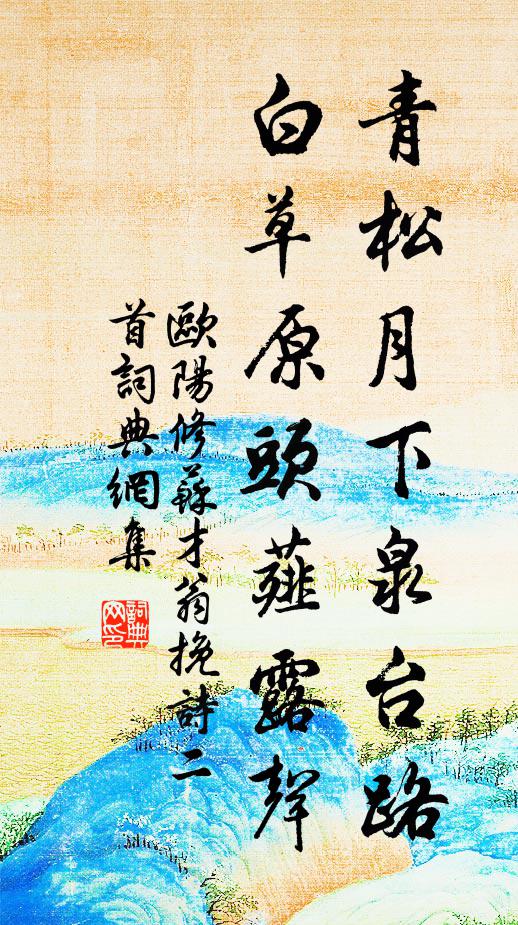 青松月下泉台路
白草原頭薤露聲
歐陽修蘇才翁挽詩二
首詞典網集
詞典
网印